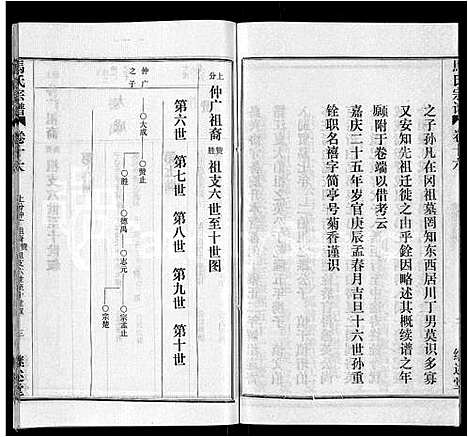 马氏宗谱 卷十六
之子孙凡在冈祖墓罔知东西居川丁男莫识多寡
又安知先祖迁徙之由乎銓因略述其概续谱之年
愿附于卷端以借考云
嘉庆二十五年岁官庚辰孟春月吉旦十六世孙重
铨职名禧字简亭号菊香谨识
上分
仲广祖裔赞胜祖支六世至十世图
第六世 第七世 第八世 第九世 第十世
仲广之子
○大成
○赞止
○胜
○德禹
○志元
○宗孟止
○宗楚
马氏宗谱 卷十六